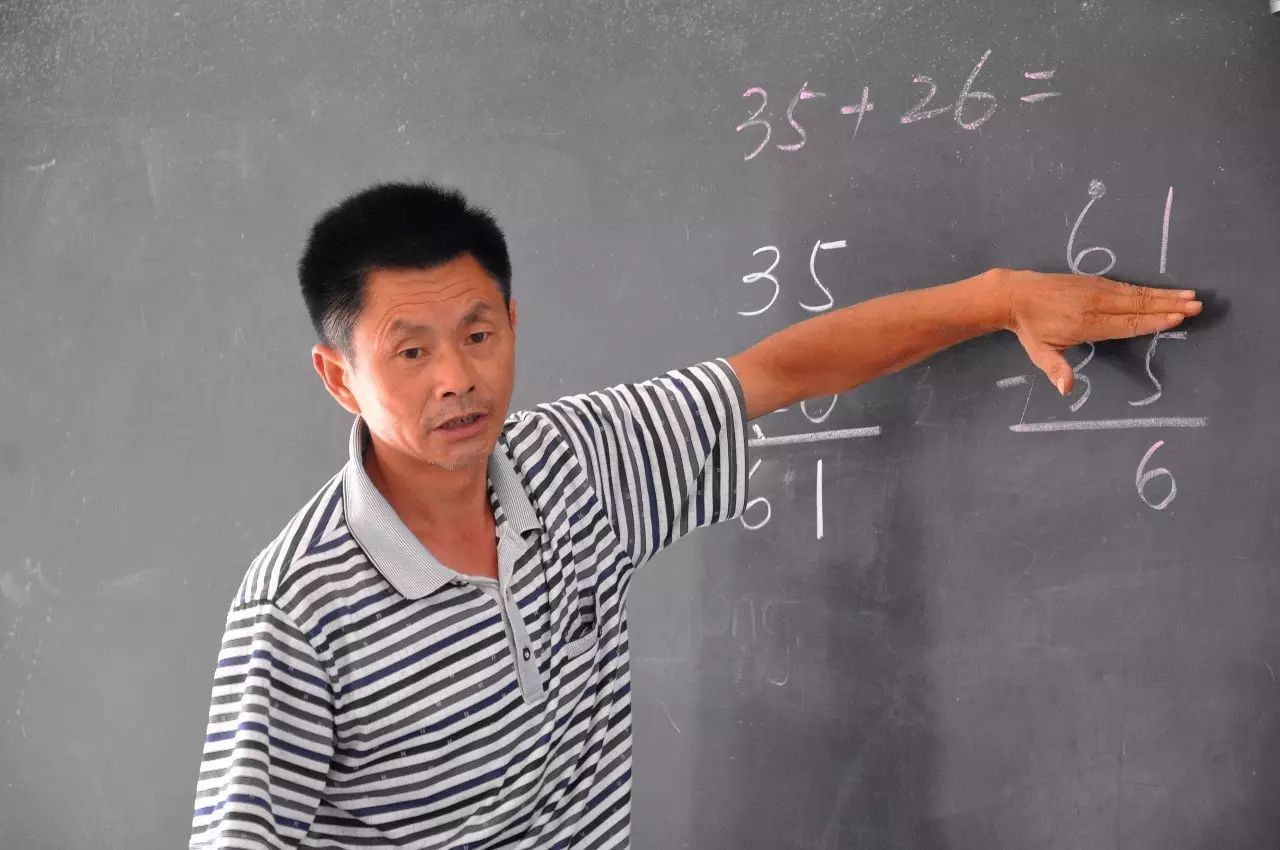 35+26=
35
61
61
-35
6